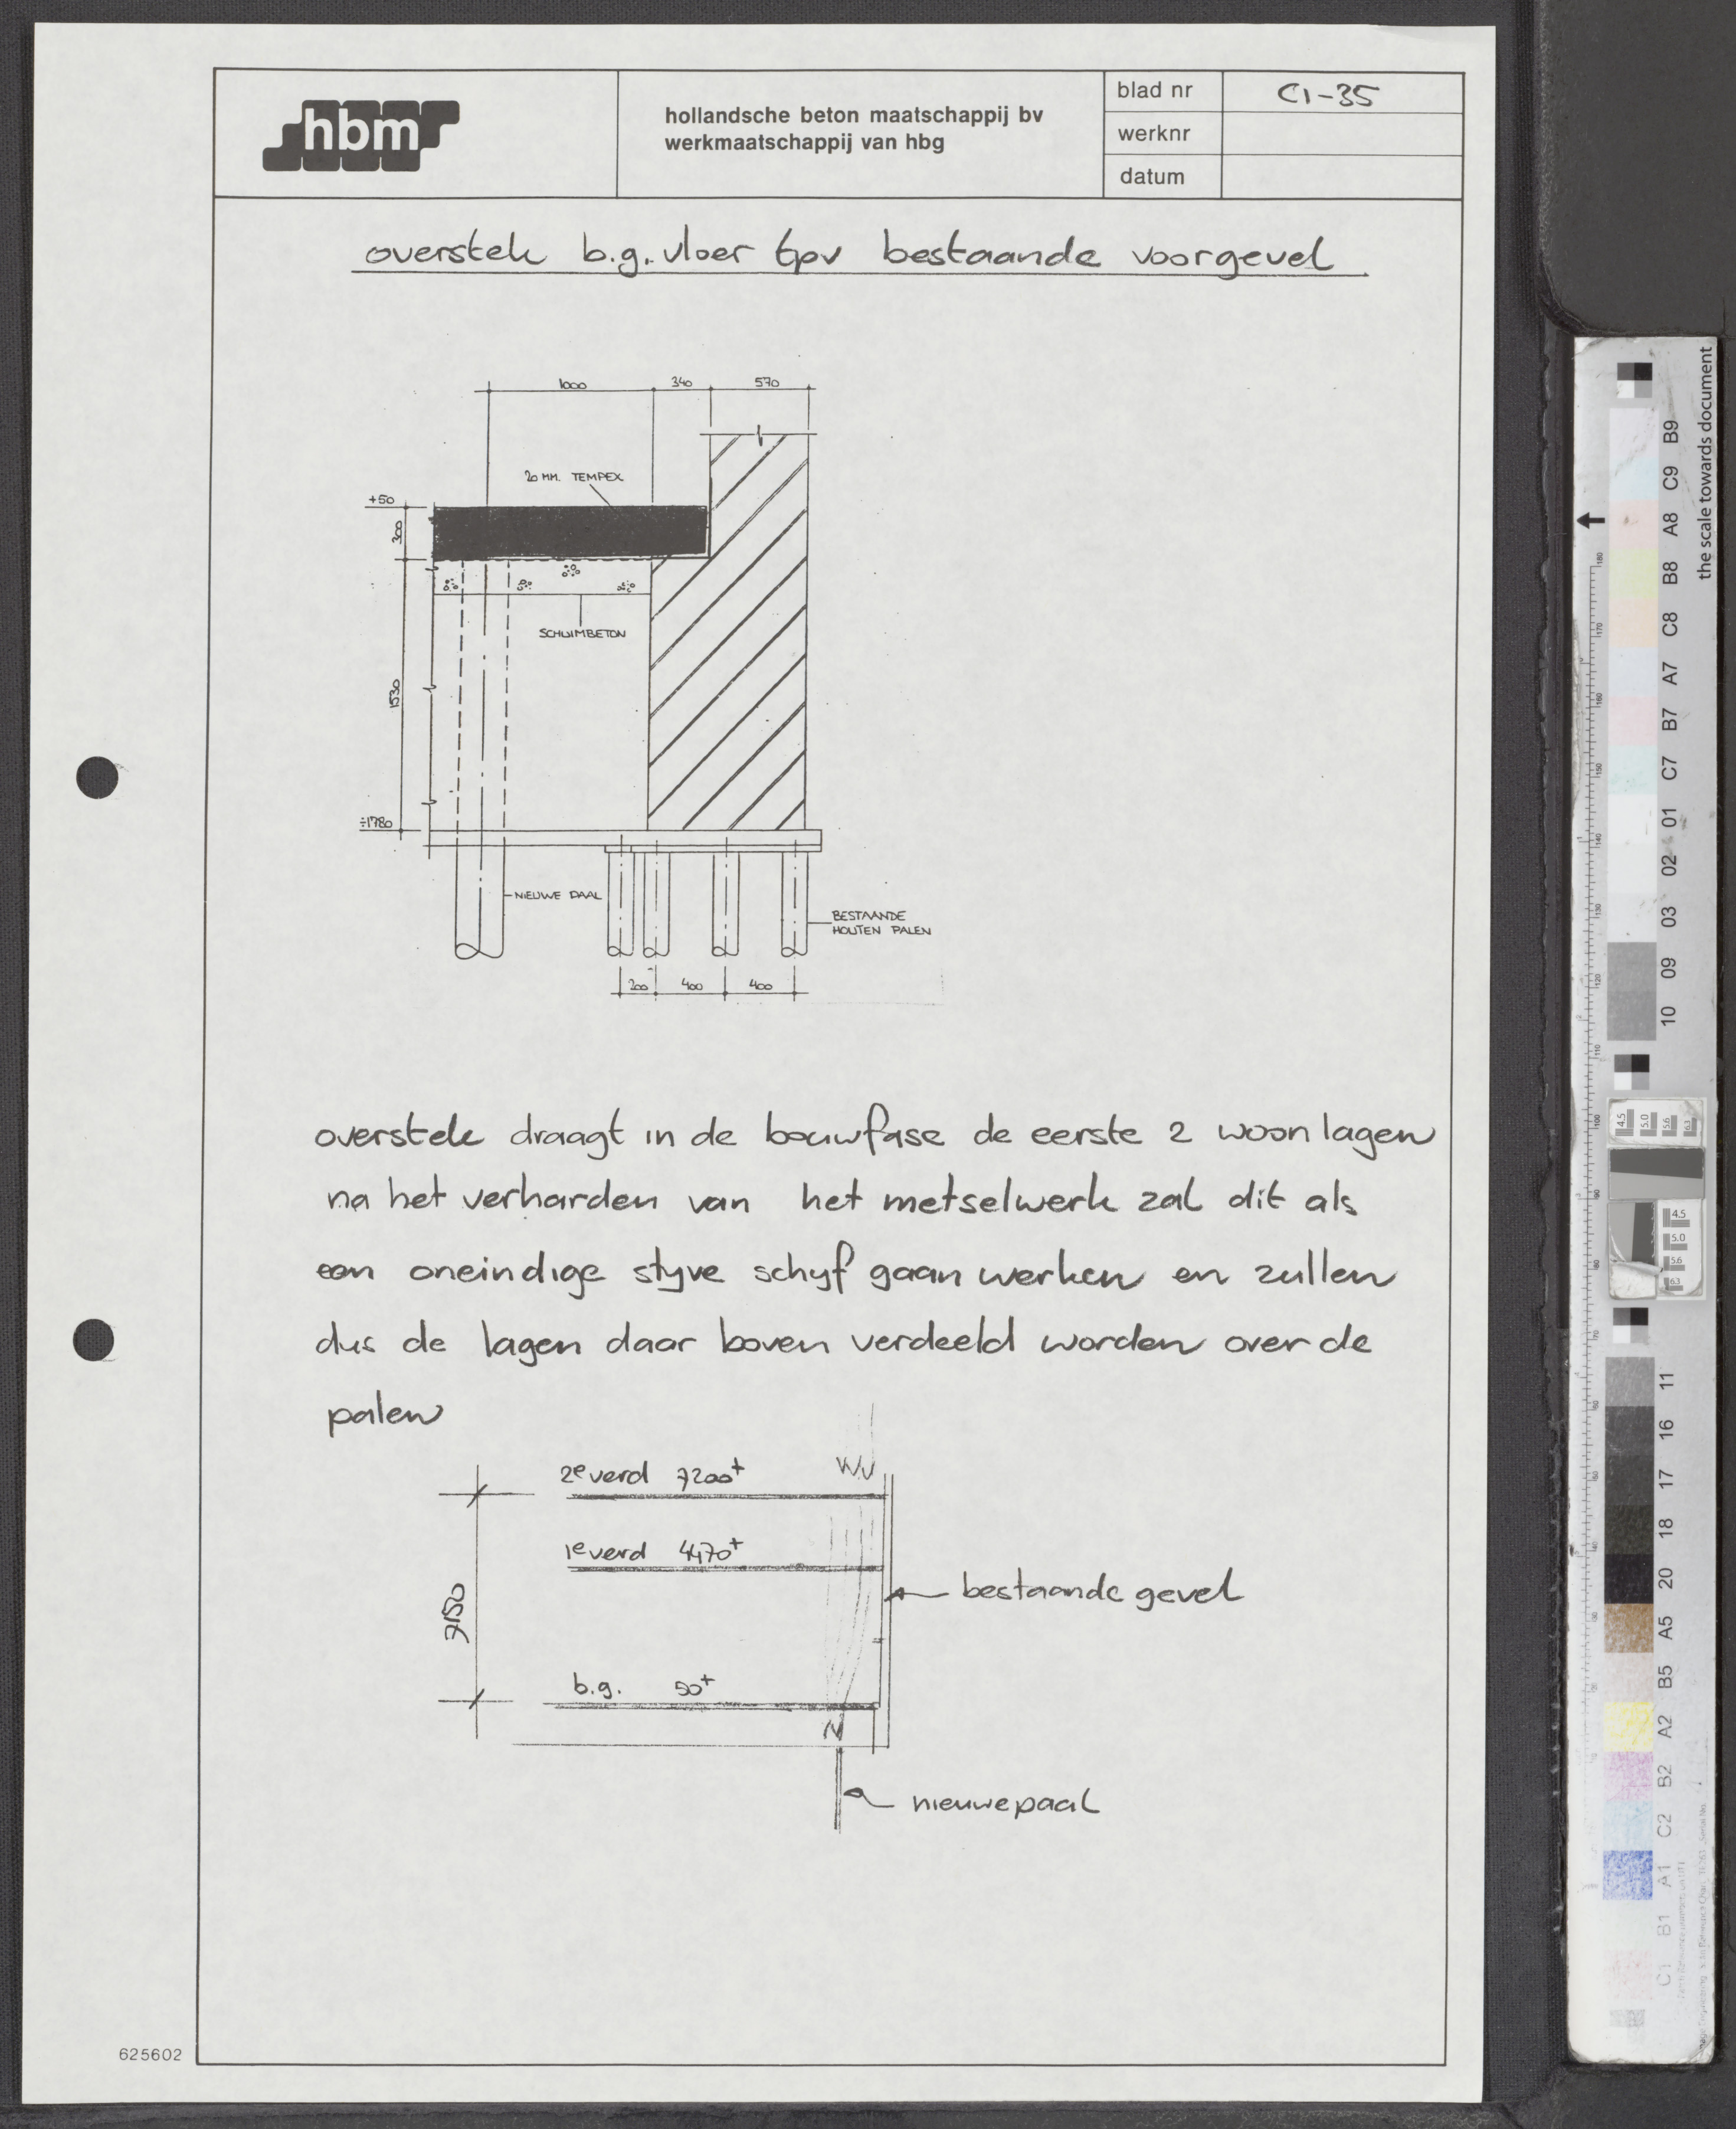 hbm
hollandsche beton maatschappij bv
werkmaatschappij van hbg
blad nr C1-35
werknr
datum
overstek b.g. vloer tpv bestaande voorgevel
1000 340 570
20 MM. TEMPEX
+50
300
SCHUIMBETON
1530
÷1780
NIEUWE PAAL
BESTAANDE
HOUTEN PALEN
200 400 400
overstek draagt in de bouwfase de eerste 2 woonlagen
na het verharden van het metselwerk zal dit als
een oneindige styve schyf gaan werken en zullen
dus de lagen daar boven verdeeld worden over de
palen
2e verd 7200+
1e verd 4470+
7150
bestaande gevel
b.g. 50+
nieuwe paal
625602
the scale towards document
B9
C9
A8
B8
C8
A7
B7
C7
01
02
03
09
10
11
16
17
18
20
A5
B5
A2
B2
C2
A1
B1
C1
180
170
160
150
140
130
120
110
100
90
80
70
4.5
5.0
5.6
6.3
4.5
5.0
5.6
6.3